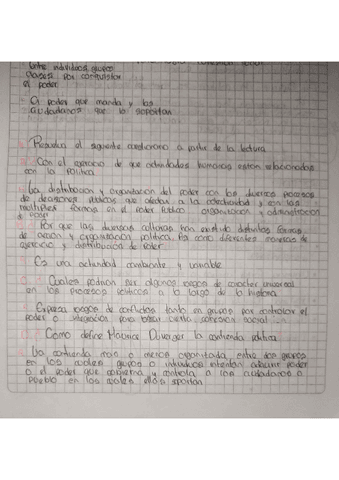 entre individuos, grupos
clases por conquistar
el poder
El poder que manda y los
ciudadanos que lo soportan
Resuelva el siguiente cuestionario a partir de la lectura
Con el ejercicio de que actividades humanas estan relacionadas
con la Politica
La distribucion y organizacion del poder con los diversos procesos
de decisiones publicas que afectan a la colectividad y son las
multiples formas en el Poder Publico organización y administracion
de poder
Por que las diversas culturas han existido distintas formas
de acción y organización politica. Asi como diferentes maneras de
ejercicio y distribución de Poder
Es una actividad cambiante y variable
Cuales podrian ser algunos rasgos de caracter universal
en los procesos politicos a lo largo de la historia
Expresa rasgos de conflictos tanto en grupos por controlar el
poder o integración para tener cierta cohesion social
Como define Maurice Diverger la contienda politica
Una contienda mas o menos organizada, entre dos grupos
en los cuales grupos o individuos intentan adquirir poder
o el poder que gobierna y controla a los ciudadanos o
pueblo en los cuales ellos soportan